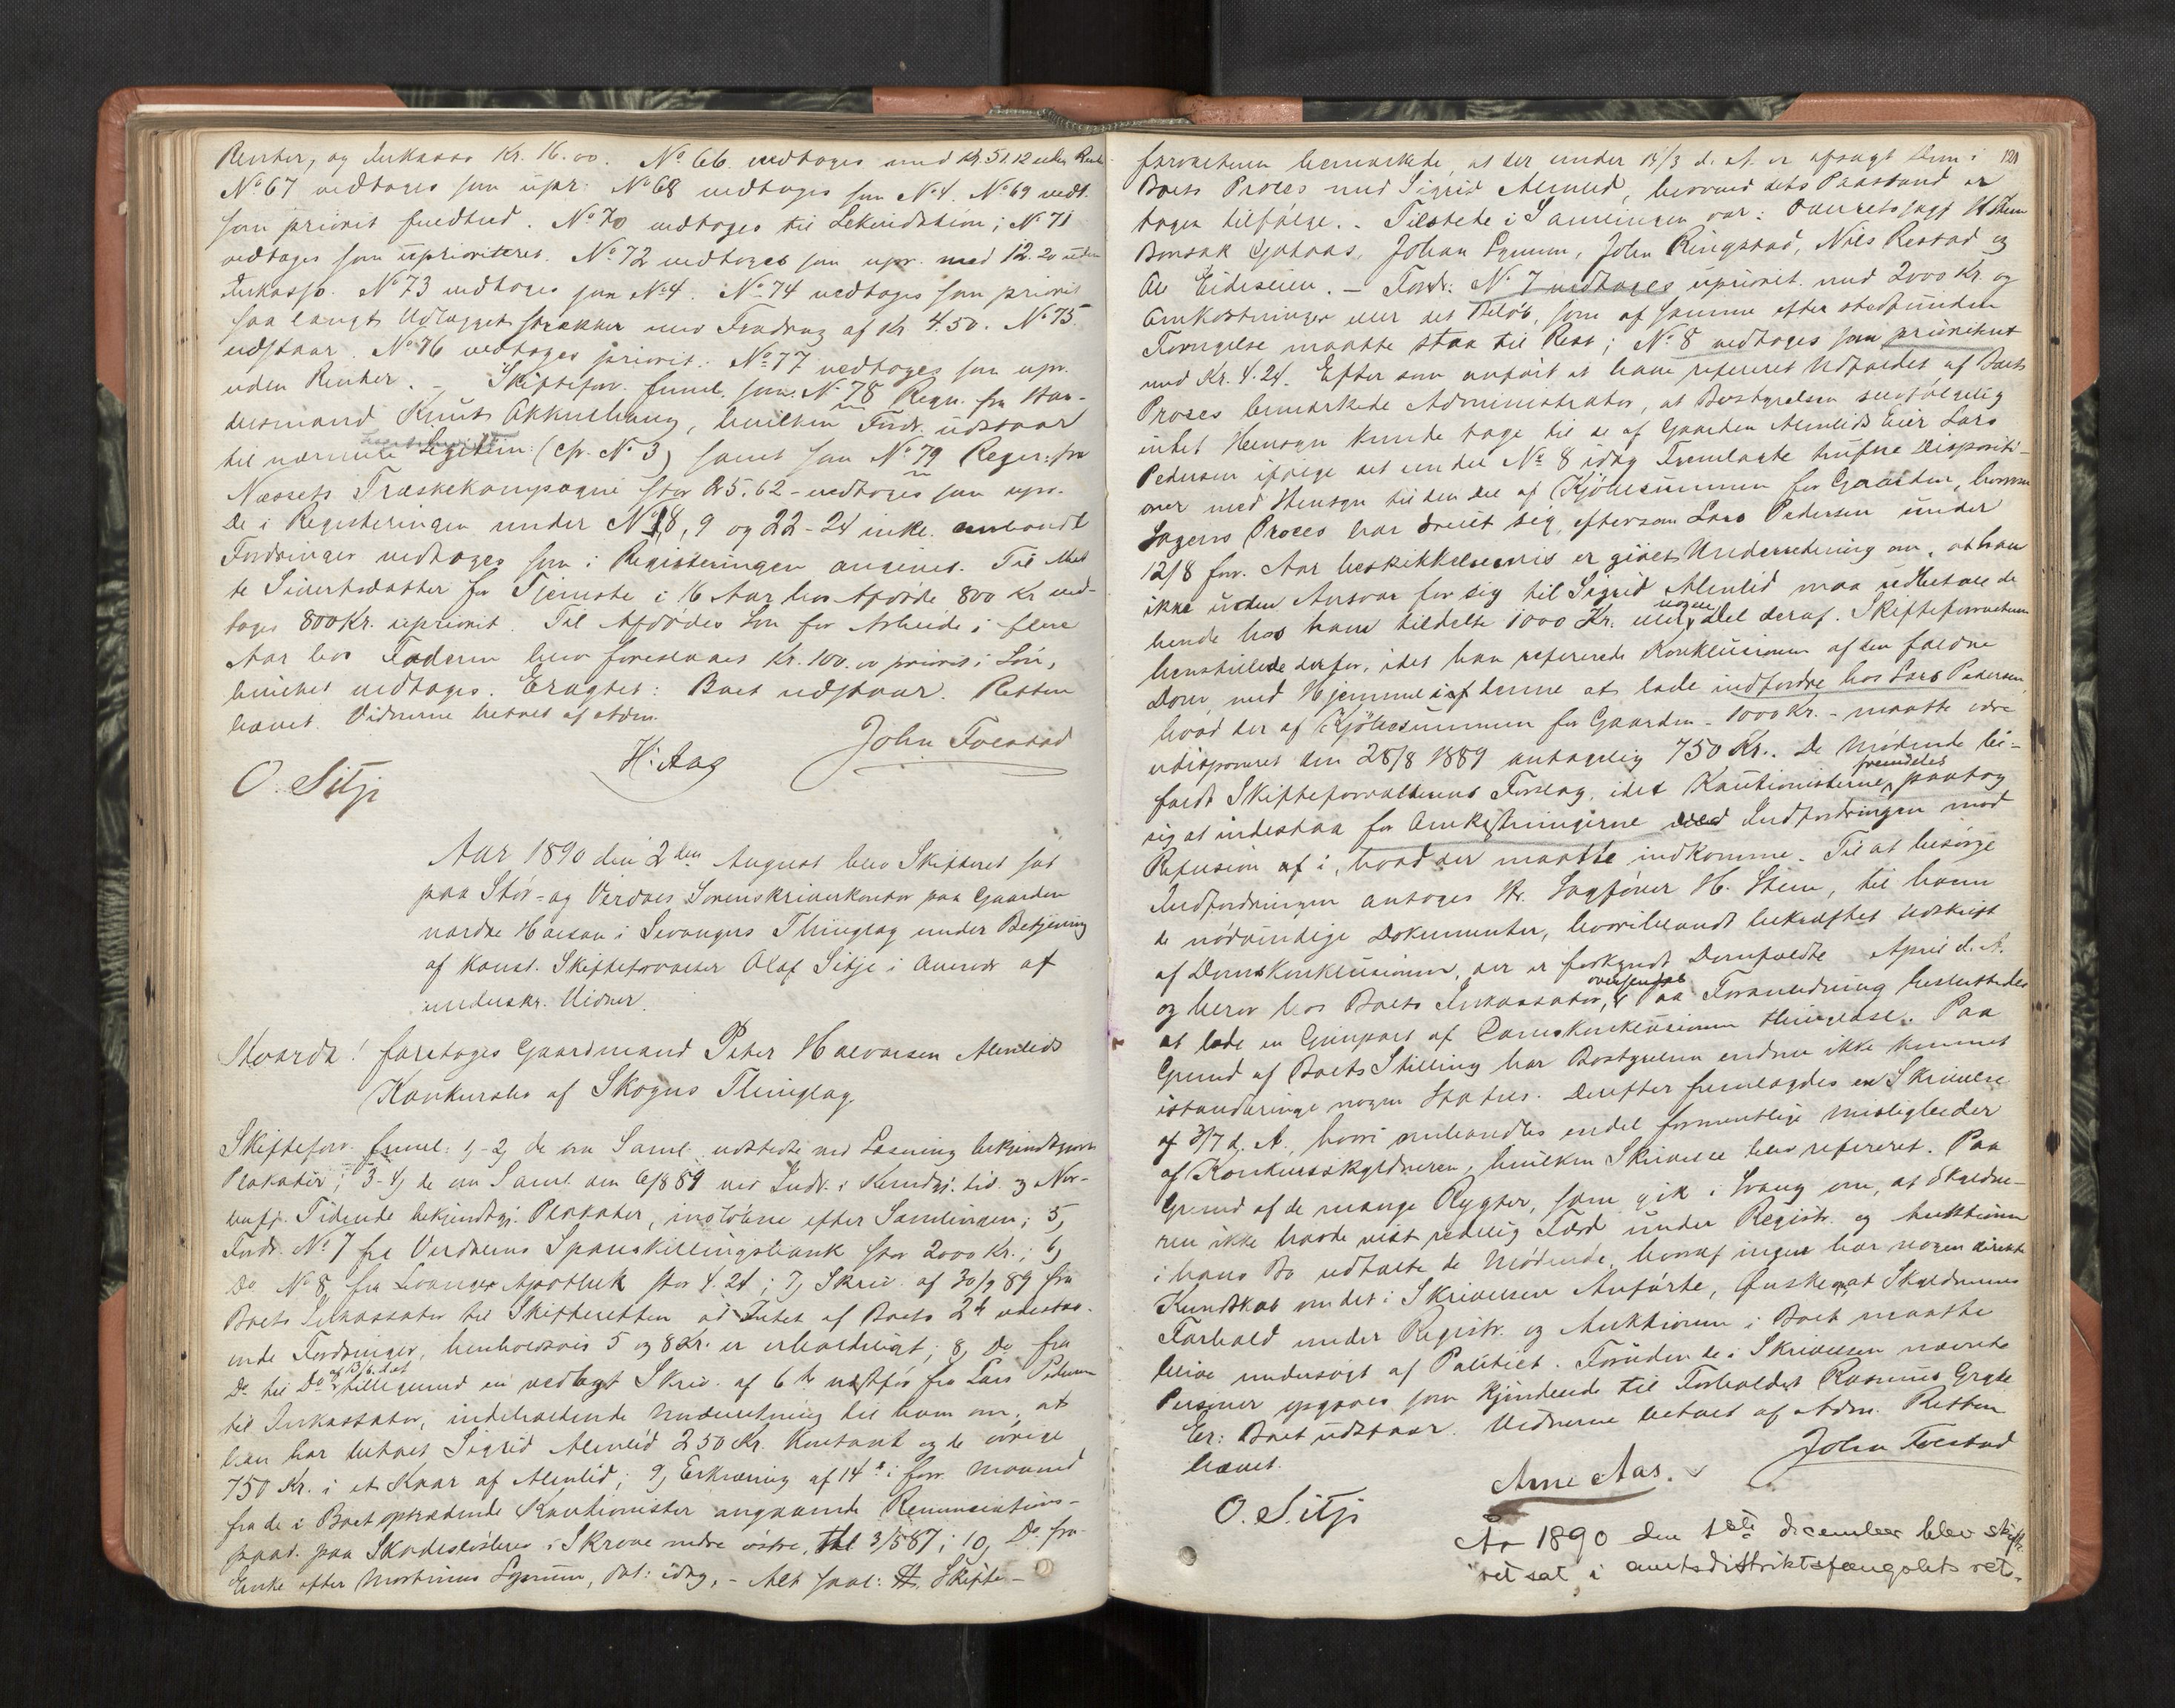 Renter, og Inkasso Kr. 16.00. No 66 vedtoges med Kr. 51.12 uden Rente
No 67 vedtoges som upr. No 68 vedtoges som No 4. No 69 vedt.
som priorit. No 70 vedtoges til Likvidation; No 71
vedtoges som uprioriteret. No 72 vedtoges som upr. med 12.20 uden
Inkasso. No 73 vedtoges som No 4. No 74 vedtoges som priorit.
saa langt Udlægget strækker med Fradrag af Kr 4.50. No 75
udstaar. No 76 vedtoges priorit. No 77 vedtoges som upr.
uden Renter. - Skifteforv. freml. som No 78 Regn. fra
Knut, hvilken Fordr. udstaar
til nærmere Legitim: (cfr. No 3) samt som No 79 Regn. fra
Næssets Træskekompagni stor Kr 5.62 - vedtoges som upr.
De i Registeringen under No 18, 9 og 22-24 inkl. omhandl.
Fordringer vedtoges som i Registeringen angivet. Til
Sivertsdatter for Tjeneste i 16 Aar hos Afdøde 800 Kr ved-
toges 800 Kr. upriorit. Til Afdødes Søn for Arbeide i flere
Aar hos Faderen blev foreslaaet Kr. 100.00 priorit i Løn,
hvilket vedtoges. Eragtet: Boet udstaar. Retten
hævet. Vidnerne betalt af Adm.
H. Aag John Foerstad
O. Sitje
Aar 1890 den 2den August blev Skifteret sat
paa Stør- og Værdals Sorenskriverkontor paa Gaarden
nordre Halsan i Levangers Thinglag under Betjening
af konst. Skifteforvalter Olaf Sitje i Overvær af
underskr. Vidner.
Hvorda! foretoges Gaardmand Peter Halvorsen Almlids
Konkursbo af Skogns Thinglag.
Skifteforv. freml. 1,-2, de om Saml. udstedte ved Læsning bekjendtgjorte
Plakater; 3-4, de om Saml. den 6/8 89 ved Indr. i Kundgj. tid. og Nor-
Tidende bekjendtgj. Plakater, indløbne efter Samlingen; 5,
Fordr. No 7 fra Verdalens Spareskillingsbank stor 2000 Kr.; 6,
Do No 8 fra Levanger Apothek stor 4.24; 7, Skriv. af 30/9 89 fra
Boets Inkassator til Skifteretten at Intet af Boets 2de udestaa-
ende Fordringer, henholdsvis 5 og 8 Kr. er erholdeligt; 8, Do fra
Do til Do af 13/6 d. A. tilligemed en vedlagt Skriv. af 6te næstfør fra Lars Pedersen
til Inkassator, indeholdende Underretning til ham om, at
han har betalt Sigrid Almlid 250 Kr. kontant og de øvrige
750 Kr. i et Kaar af Almlid; 9, Erklæring af 14de i forr. Maaned
fra de i Boet optrædende Kautionister angaaende Renunciations-
paat. paa Skadesløsbrev i Skrove nedre østre, thl 3/5 87; 10, Do fra
Enke efter Mortinus Lynum, dat: idag, - Alt saal: Skifte-
120
forvalteren bemærkede, at der under 13/3 d. A. er afsagt Dom i
Boets Proces med Sigrid Almlid, hvorved dets Paastand er
tagen tilfølge. - Tilstede i Samlingen var: Overretssagf. H. Stem
Johan Lynum, John Ringstad, Nils Restad og
Ole Eideseien. - Fordr. No 7 vedtoges upriorit. med 2000 Kr. og
Omkostninger eller det Beløb, som af samme efter stedfunden
Forringelse maatte staa til Rest; No 8 vedtoges som prioriteret
med Kr. 4.24. Efter som anført at have refereret Udfaldet af Boets
Proces bemærkede Administrator, at Bostyrelsen selvfølgelig
intet Hensyn kunde tage til de af Gaarden Almlids Eier Lars
Pedersen ifølge det under No 8 idag Fremlagte trufne Dispositi-
oner med Hensyn til den Del af Kjøbesummen for Gaarden, hvorom
Sagens Proces har dreiet sig, eftersom Lars Pedersen under
12/8 forr. Aar beskikkelsesvis er givet Underretning om, at han
ikke uden Ansvar for sig til Sigrid Almlid maa udbetale de
hende hos ham tildelte 1000 Kr. eller nogen Del deraf. Skifteforvalteren
henstillede derfor, idet han refererede Konklusionen af den faldne
Dom, med Hjemmel i denne at lade indfordre hos Lars Pedersen
hvad der af Kjøbesummen for Gaarden - 1000 Kr. - maatte være
udisponeret den 28/8 1889 antagelig 750 Kr. De Mødende bi-
faldt Skifteforvalterens Forslag, idet Kautionisterne fremdeles paatog
sig at indestaa for Omkostningerne ved Indfordringen mod
Refusion af i, hvad der maatte indkomme. Til at besørge
Indfordringen antoges Hr. Sagfører H. Stem, til hvem
de nødvendige Dokumenter, hvoriblandt bekræftet Udskrift
af Domskonklusionen, der er forkyndt Domfældte April d. A.
og beror hos Boets Inkassator, oversendes. Paa Foranledning besluttedes
at lade en Gjenpart af Domskonklusionen thinglæse. Paa
Grund af Boets Stilling har Bostyrelsen endnu ikke kunnet
istandbringe nogen Status. Derefter fremlagdes en Skrivelse
af 3/7 d. A., hvori omhandles endel formentlige Misligheder
af Konkursskyldneren, hvilken Skrivelse blev refereret. Paa
Grund af de mange Rygter, som gik i Svang om, at Skyldne-
ren ikke havde vist redelig Færd under Registr. og Auktionen
i hans Bo udtalte de Mødende, hvoraf ingen har nogen direkte
Kundskab om det i Skrivelsen Anførte, Ønske om, at Skyldnerens
Forhold under Registr. og Auktionen i Boet maatte
blive undersøgt af Politiet. Foruden de i Skrivelsen nævnte
Personer opgaves som kjendende til Forholdet Rasmus Gryde
Er: Boet udstaar. Vidnerne betalt af Adm. Retten
hævet. John Foerstad
Arne Aas.
O. Sitje
Ar 1890 den 1ste december blev skifte-
ret sat i amtsdistriktsfængslets rets-